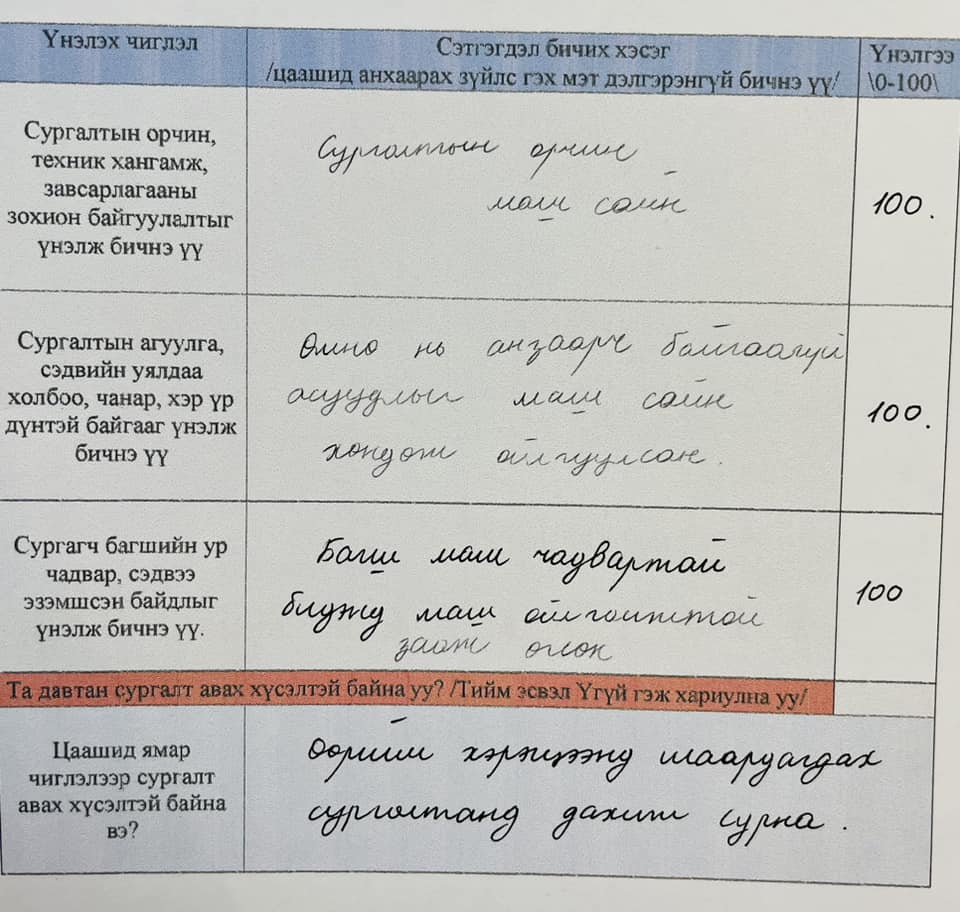 Үнэлэх чиглэл
Сэтгэгдэл бичих хэсэг
/цаашид анхаарах зүйлс гэх мэт дэлгэрэнгүй бичнэ үү/
Үнэлгээ
\0-100\
Сургалтын орчин,
техник хангамж,
завсарлагааны
зохион байгуулалтыг
үнэлж бичнэ үү
Сургалтын орчин
маш сайн
100.
Сургалтын агуулга,
сэдвийн уялдаа
холбоо, чанар, хэр үр
дүнтэй байгааг үнэлж
бичнэ үү
Өмнө нь анзаарч байгаагүй
асуудлыг маш сайн
хөндөж ойлгуулсан.
100.
Сургагч багшийн ур
чадвар, сэдвээ
эзэмшсэн байдлыг
үнэлж бичнэ үү.
Багш маш чадвартай
бидэнд маш ойлгомжтой
зааж өгсөн
100
Та давтан сургалт авах хүсэлтэй байна уу? /Тийм эсвэл Үгүй гэж хариулна уу/
Цаашид ямар
чиглэлээр сургалт
авах хүсэлтэй байна
вэ?
Өөрийн хэрэгцээнд шаардагдах
сургалтанд дахин сурна.